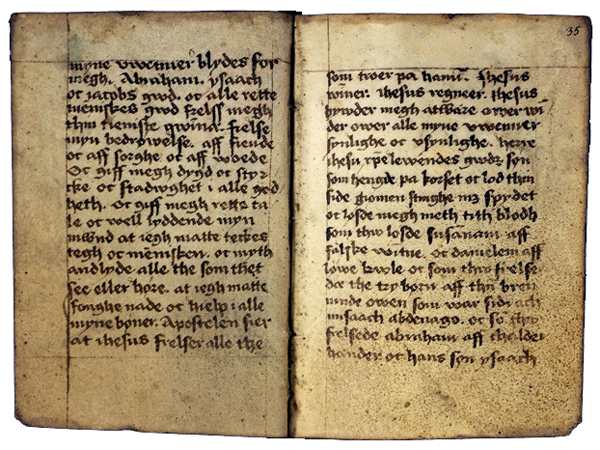 myne vwenner blydes for
megh. Abraham. ysaach
oc iacobs gwd. oc alle rette
menniskes gwd frelss megh
thin tieniste qwina. frelse
myn bedrøwelse. aff fiende
oc aff sorghe oc aff woede
Oc giff megh dygd oc styr
cke oc stadwghet i alle god
heth. Oc giff megh rette ta
le oc well lyddende myn
mwnd at iegh matte teckes
tegh oc mennisken. oc myth
andlyde alle the som thet
see eller høre. at iegh matte
fonghe nade oc hielp i alle
myne bøner. Apostelen sier
at ihesus frelser alle the
35
som troer pa hanum. Ihesus
winer. ihesus regneer. Ihesus
bywder megh attware offwer wi
der ower alle myne vwenner
synlighe oc vsynlighe. herre
ihesu xpe lewendes gwdz søn
som hengde pa korset oc lod thin
side giomen stinghe mz spydet
oc losde megh meth tith blodh
som thw losde susanam aff
falske witne. oc danielem aff
løwe kwle oc som thw frelse
de the try børn aff thn bren
ninde owen som war sidrach
misaach abdenago. oc so thw
frelsede abraham aff chaldei
hænder oc hans søn ysaach